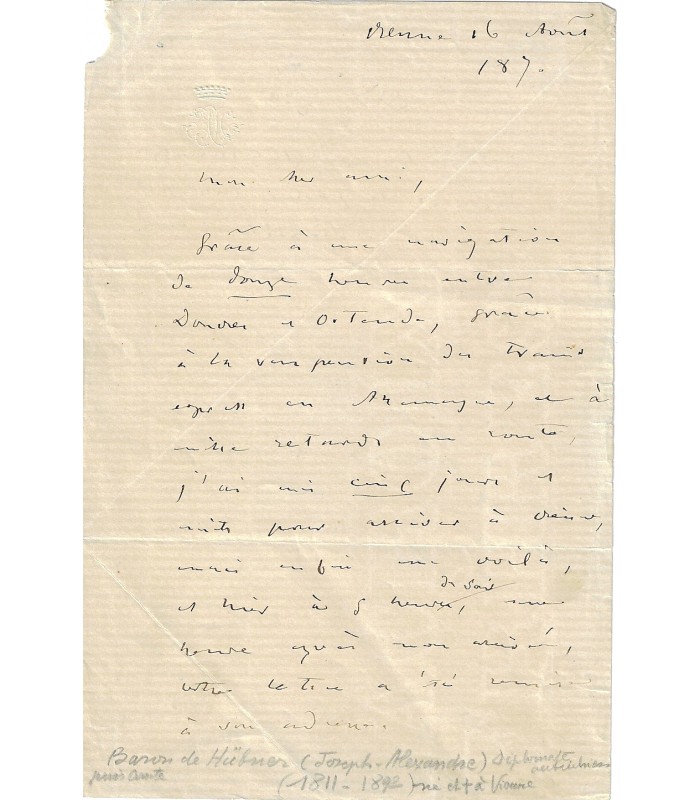 Vienne 16 Août
187.
Mon cher ami,
Grâce à une navigation
de douze heures entre
Douvres et Ostende, grâce
à la suspension des trains
express en Allemagne, et à
mille retards en route,
j'ai mis cinq jours et
nuits pour arriver à Vienne,
mais enfin me voilà,
et hier à 8 heures, du soir une
heure après mon arrivée,
votre lettre a été remise
à son adresse.
Baron de Hübner (Joseph-Alexandre) Diplomate autrichien
puis Comte (1811-1892) né et + à Vienne